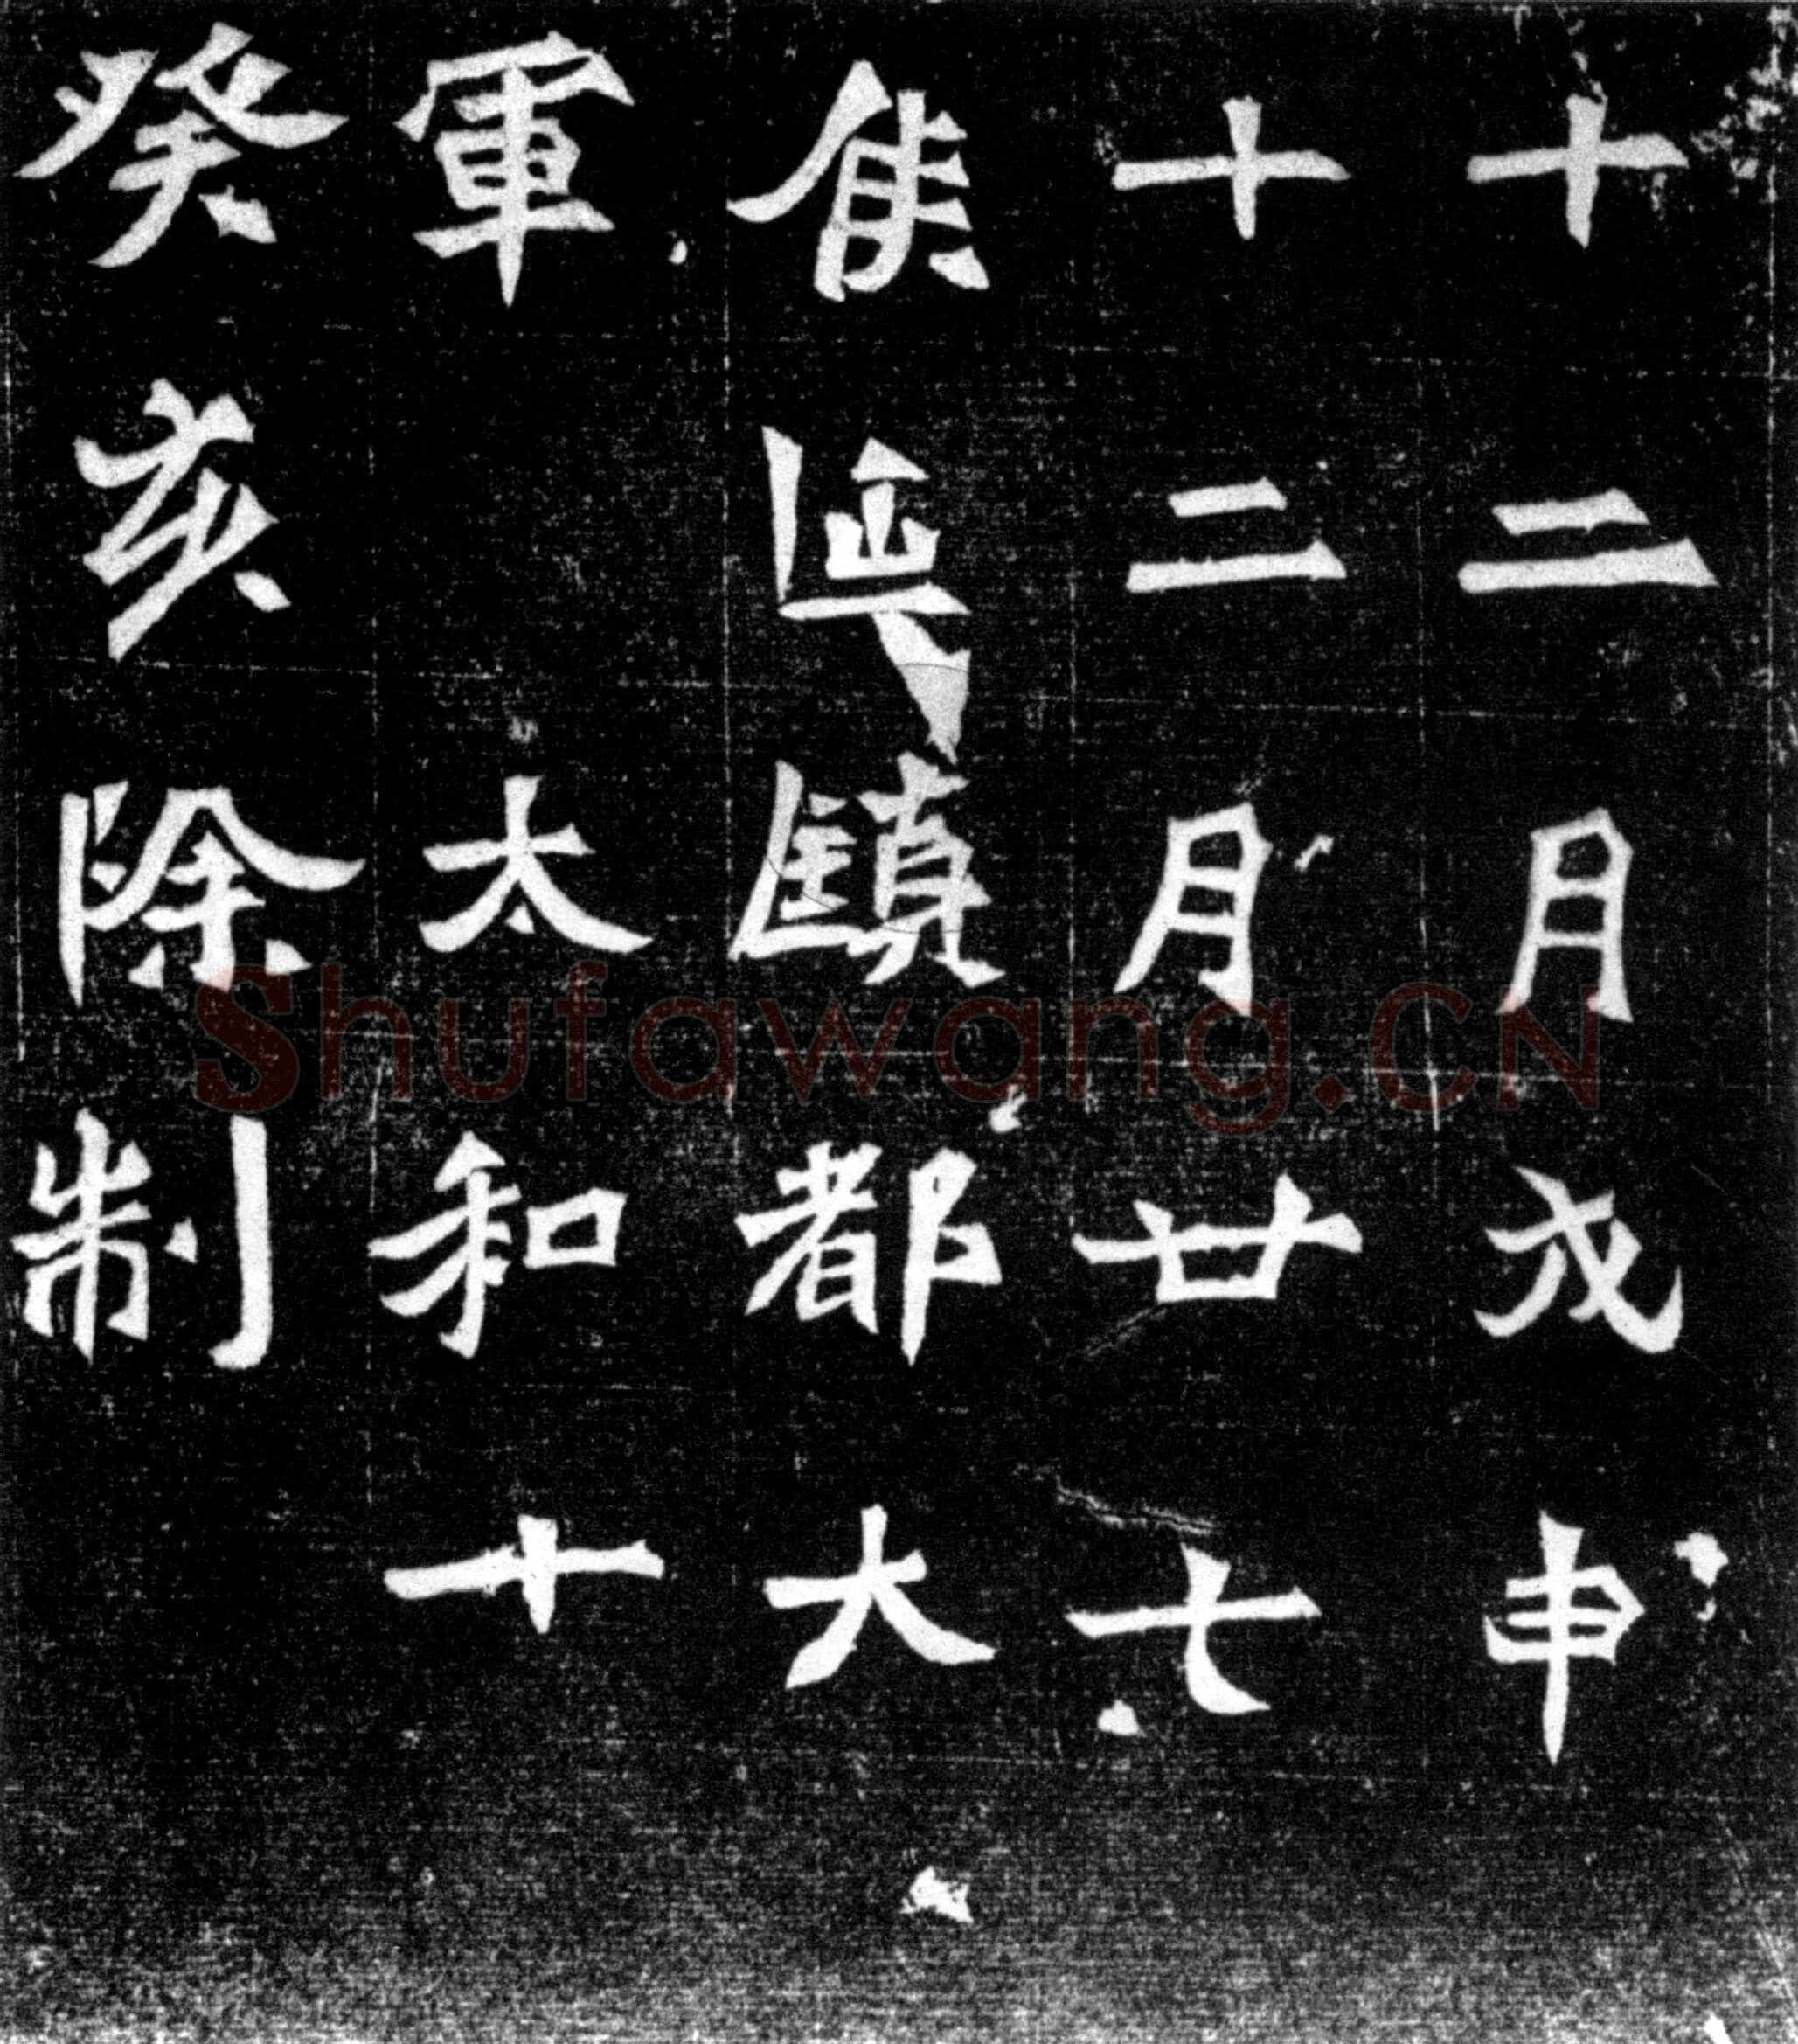 十二月戊申
十二月廿七
侯延鎮都大
軍太和十
癸亥除制
Shufawang.CN